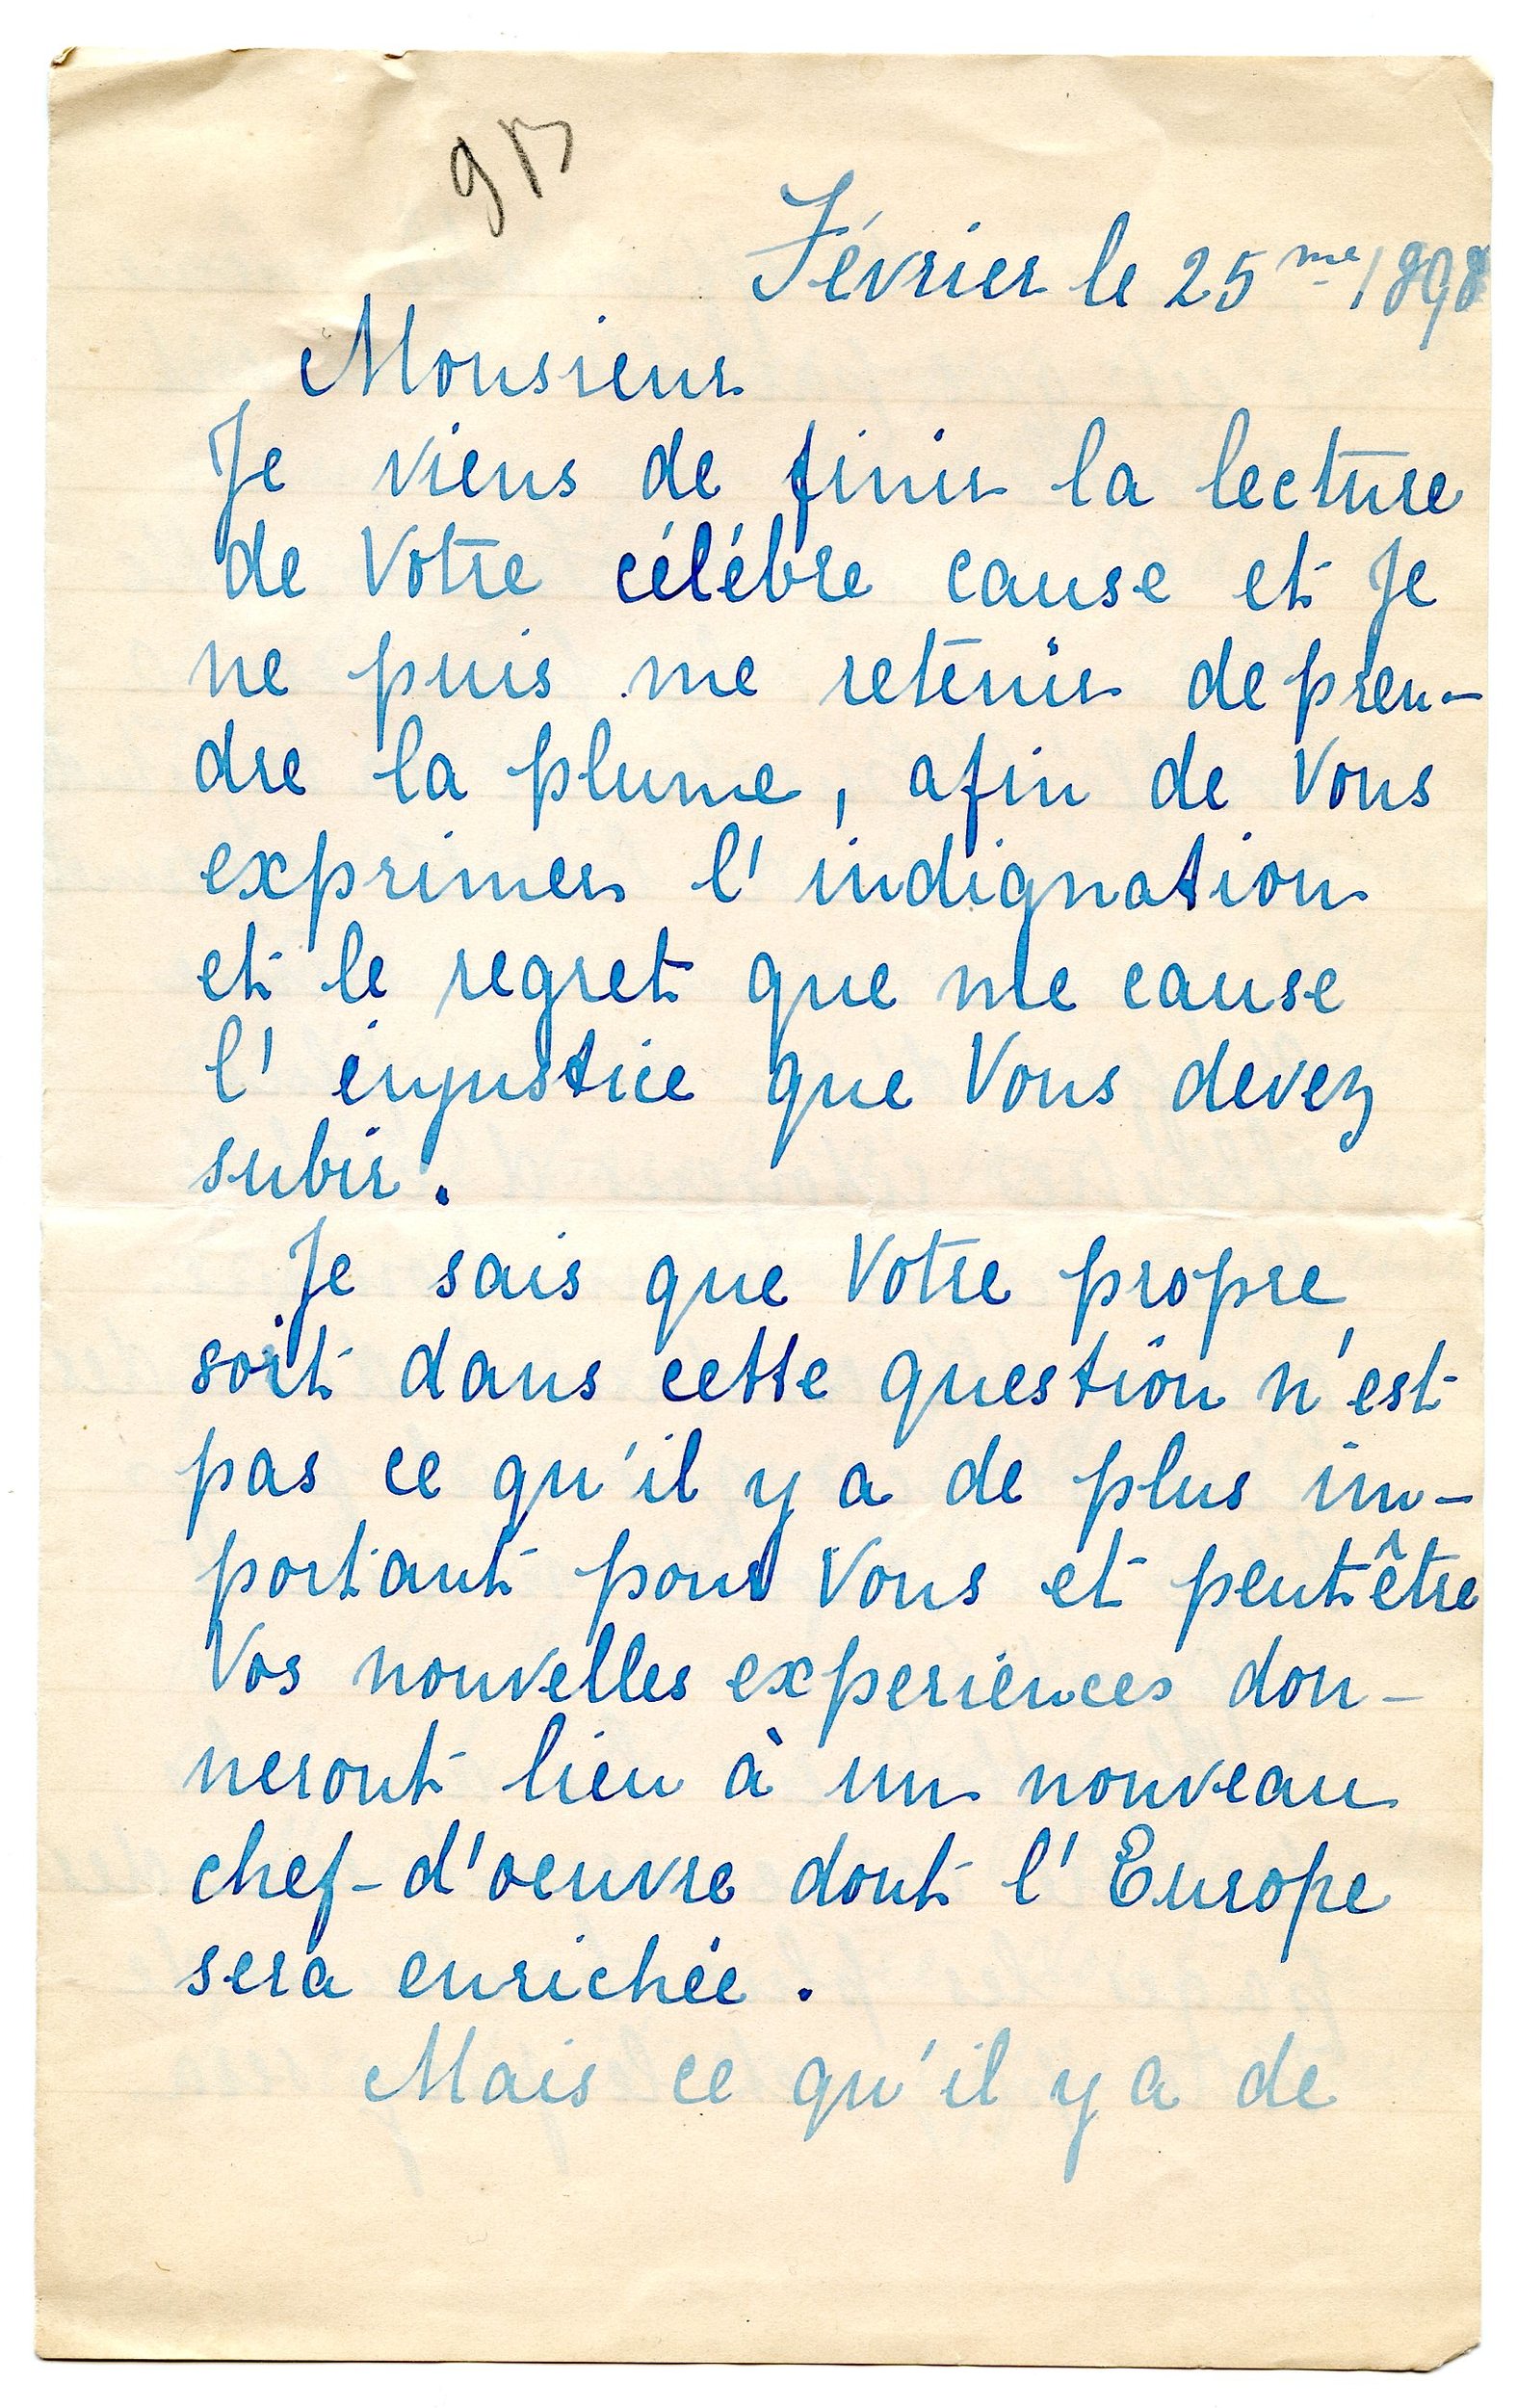 Février le 25me 1898
Monsieur
Je viens de finir la lecture
de Votre célébre cause et Je
ne puis me retenir de pren-
dre la plume, afin de Vous
exprimer l'indignation
et le regret que me cause
l'injustice que Vous devez
subir.
Je sais que Votre propre
sort dans cette question n'est
pas ce qu'il y a de plus im-
portant pour Vous et peutêtre
Vos nouvelles experiences don-
neront lieu à un nouveau
chef-d'oeuvre dont l'Europe
sera enrichée.
Mais ce qu'il y a de